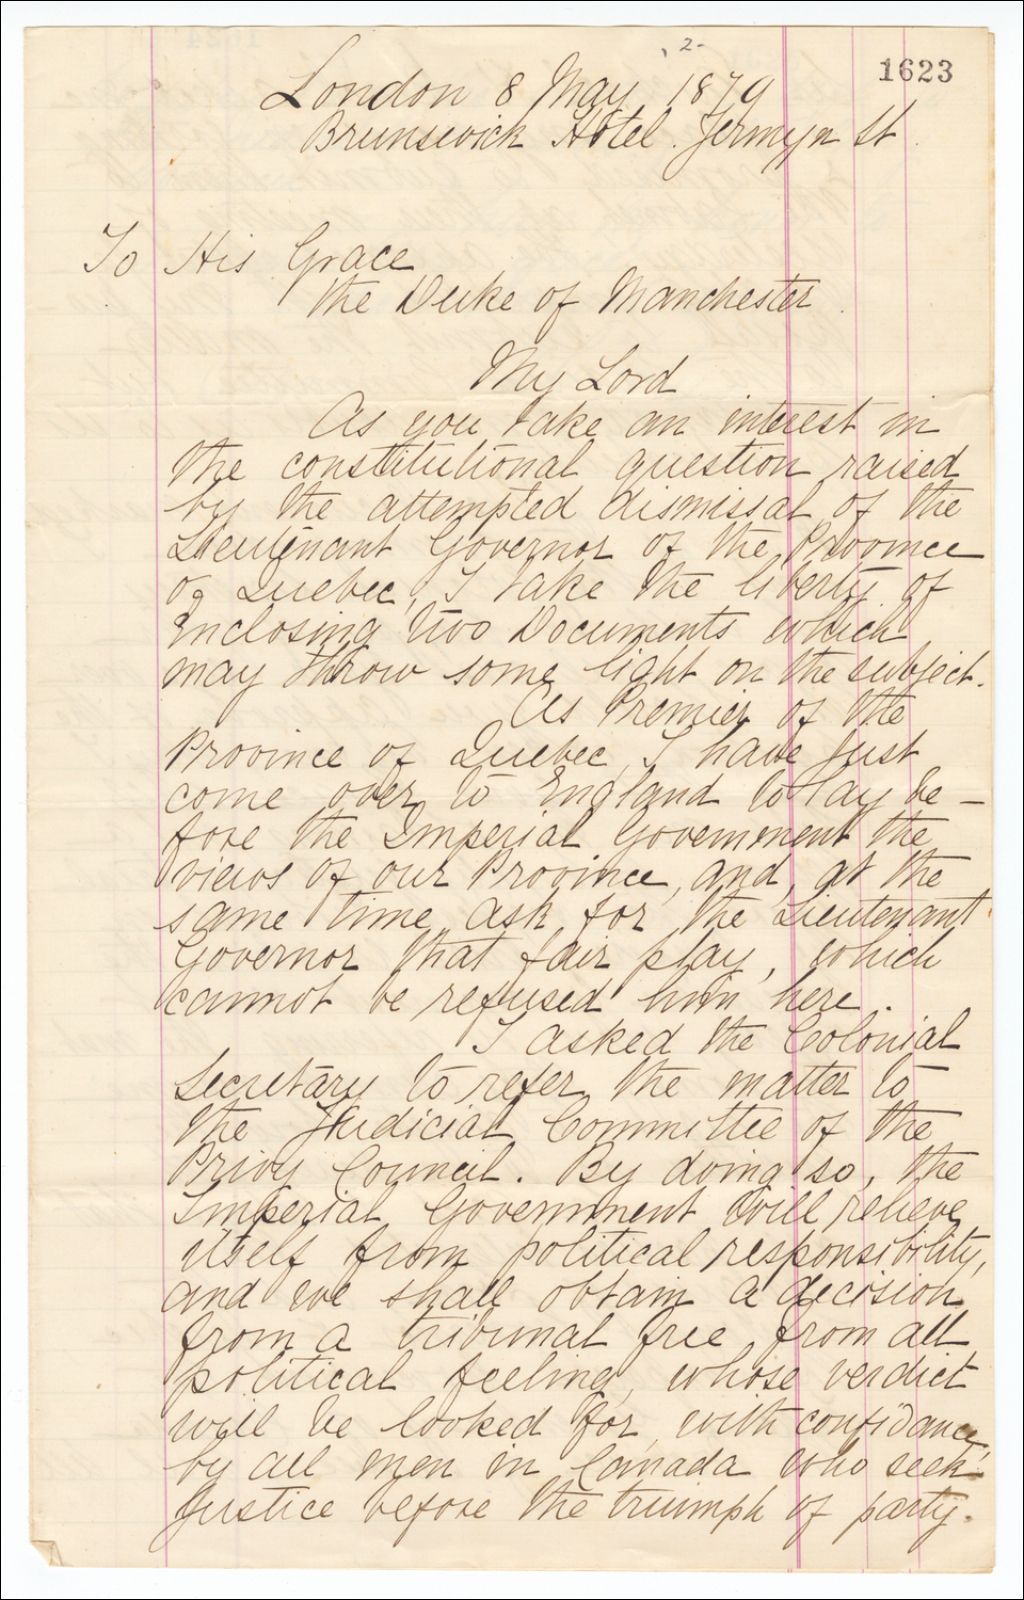 2-
1623
London 8 May 1879
Brunswick Hotel. Jermyn St
To His Grace
the Duke of Manchester.
My Lord
As you take an interest in
the constitutional question raised
by the attempted dismissal of the
Lieutenant Governor of the Province
of Quebec, I take the liberty of
Enclosing two Documents which
may throw some light on the subject.
As Premier of the
Province of Quebec, I have just
come over to England to lay be-
fore the Imperial Government the
views of our Province, and, at the
same time, ask for the Lieutenant
Governor that fair play, which
cannot be refused him here.
I asked the Colonial
Secretary to refer the matter to
the Judicial Committee of the
Privy Council. By doing so, the
Imperial Government will relieve
itself from political responsibility,
and we shall obtain a decision
from a tribunal free from all
political feeling, whose verdict
will be looked for, with confidance,
by all men in Canada who seek
Justice before the triumph of party.